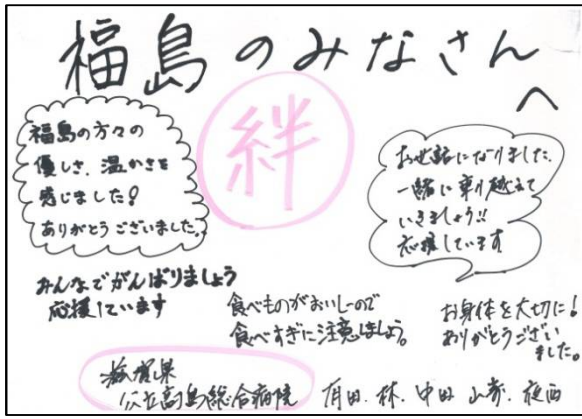 福島のみなさん
へ
絆
福島の方々の
優しさ、温かさを
感じました!
ありがとうございました。
お世話になりました。
一緒に乗り越えて
いきましょう!!
応援しています
みんなでがんばりましょう
応援しています
食べものがおいしーので
食べすぎに注意しましょう。
お身体を大切に!
ありがとうござい
ました。
滋賀県
公立高島総合病院
有田、林、中田